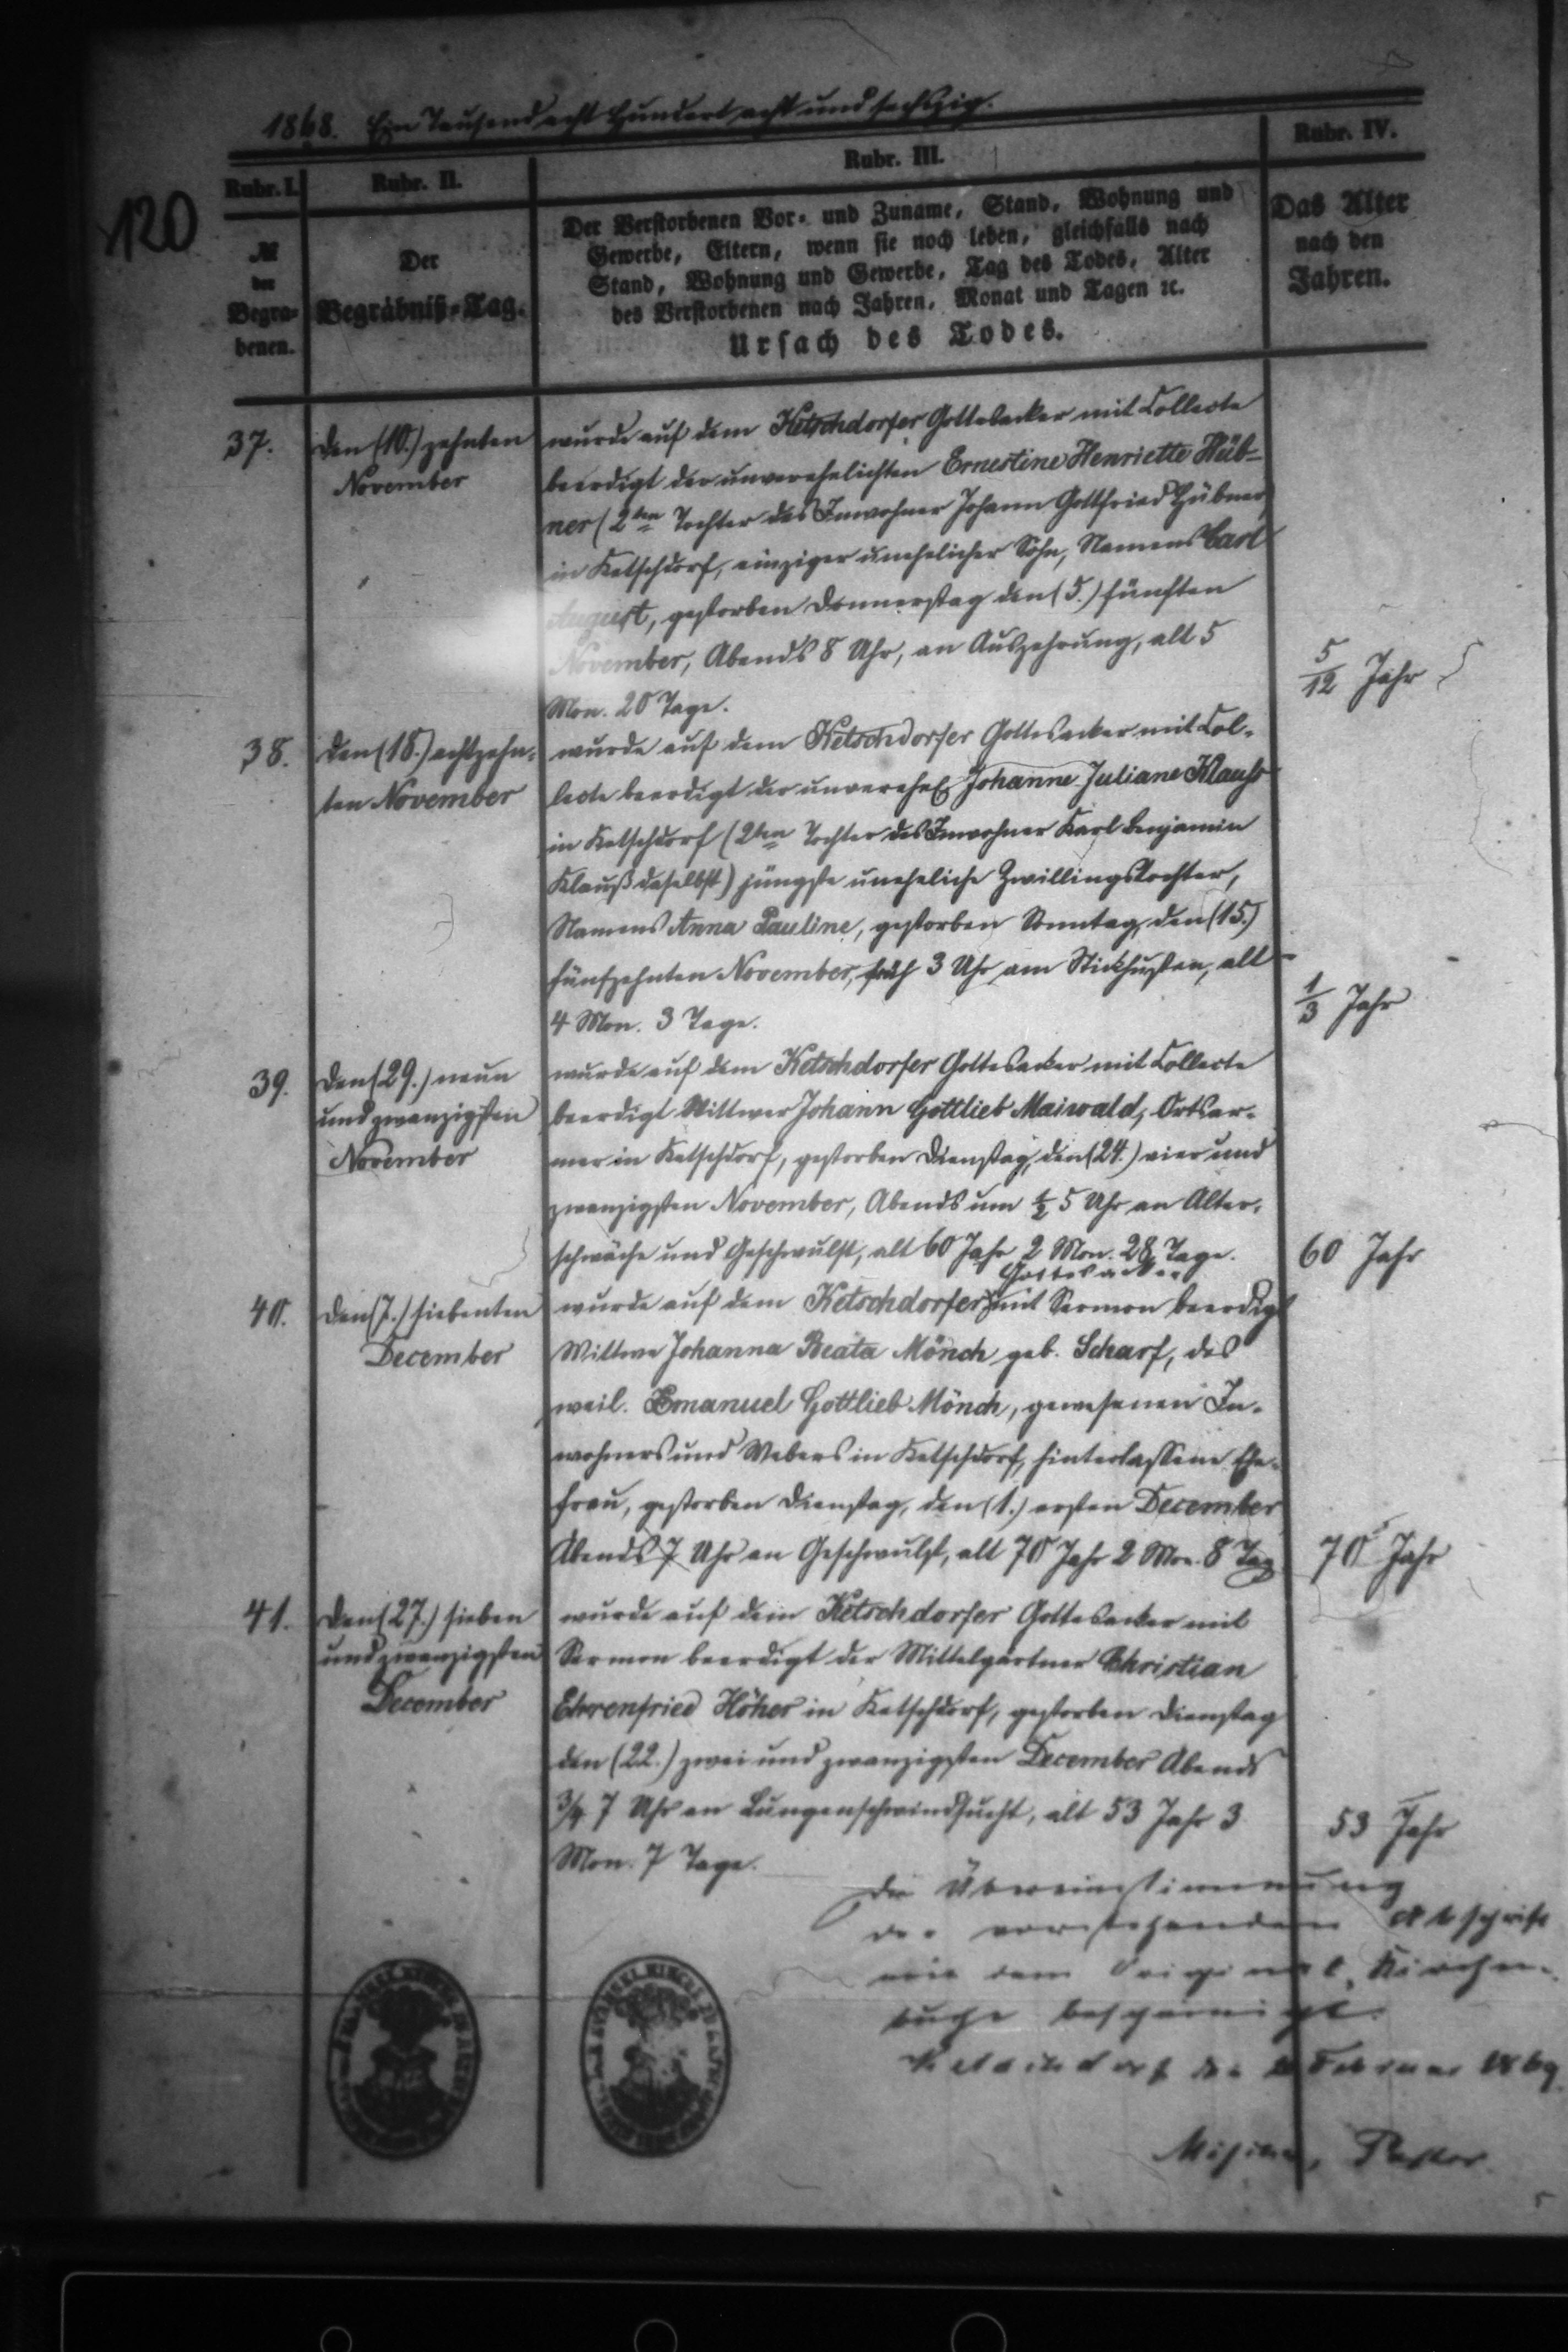 1868. Ein Tausend acht Hundert acht und sechszig.
120
Rubr. I.
Rubr. II.
Rubr. III.
Rubr. IV.
№
der
Begra-
benen.
Der
Begräbniß-Tag.
Der Verstorbenen Vor- und Zuname, Stand, Wohnung und
Gewerbe, Eltern, wenn sie noch leben, gleichfalls nach
Stand, Wohnung und Gewerbe, Tag des Todes, Alter
des Verstorbenen nach Jahren, Monat und Tagen ꝛc.
Ursach des Todes.
Das Alter
nach den
Jahren.
37.
den (10.) zehnten
November
wurde auf dem Ketschdorfer Gottesacker mit Collecte
beerdigt der unverehelichten Ernestine Henriette Hüb-
ner (2ten Tochter des Inwohner Johann Gottfried Hübner)
in Ketschdorf, einziger unehelicher Sohn, Namens Carl
August, gestorben Donnerstag den (5.) fünften
November, Abends 8 Uhr, an Auszehrung, alt 5
Mon. 20 Tage.
5/12 Jahr
38.
den (18.) achtzehn-
ten November
wurde auf dem Ketschdorfer Gottesacker mit Col-
lecte beerdigt der unverehel. Johanne Juliane Klauß
in Ketschdorf (2ten Tochter des Inwohner Karl Benjamin
Klauß daselbst) jüngste uneheliche Zwillingstochter,
Namens Anna Pauline, gestorben Sonntag, den (15.)
fünfzehnten November, früh 3 Uhr am Stickhusten, alt
4 Mon. 3 Tage.
1/3 Jahr
39.
den (29.) neun
und zwanzigsten
November
wurde auf dem Ketschdorfer Gottesacker mit Collecte
beerdigt Wittwer Johann Gottlieb Maiwald, Ortsar-
mer in Ketschdorf, gestorben Dienstag, den (24.) vier und
zwanzigsten November, Abends um ½ 5 Uhr an Alter-
schwäche und Geschwulst, alt 60 Jahr 2 Mon. 28 Tage.
60 Jahr
40.
den (7.) siebenten
December
Gottesacker
wurde auf dem Ketschdorfer mit Sermon beerdigt
Wittwe Johanna Beata Mönch geb. Scharf, des
weil. Emanuel Gottlieb Mönch, gewesenen In-
wohners und Webers in Ketschdorf, hinterlassene Ehe-
frau, gestorben Dienstag, den (1.) ersten December
Abends 7 Uhr an Geschwulst, alt 70 Jahr 2 Mon. 8 Tag
70 Jahr
41.
den (27.) sieben
und zwanzigsten
December
wurde auf dem Ketschdorfer Gottesacker mit
Sermon beerdigt der Mittelgärtner Christian
Ehrenfried Höher in Ketschdorf, gestorben Dienstag
den (22.) zwei und zwanzigsten December Abends
3/4 7 Uhr an Lungenschwindsucht, alt 53 Jahr 3
Mon. 7 Tage.
53 Jahr
Die Übereinstimmung
der vorstehenden Abschrift
mit dem Original Kirchen-
buche bescheinigt.
Ketschdorf den Februar 1869
Pastor.